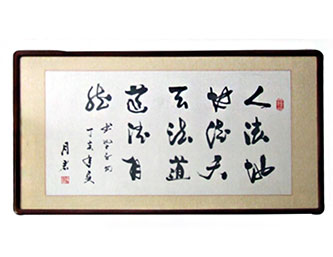 人法地
地法天
天法道
道法自
然
丁亥年夏